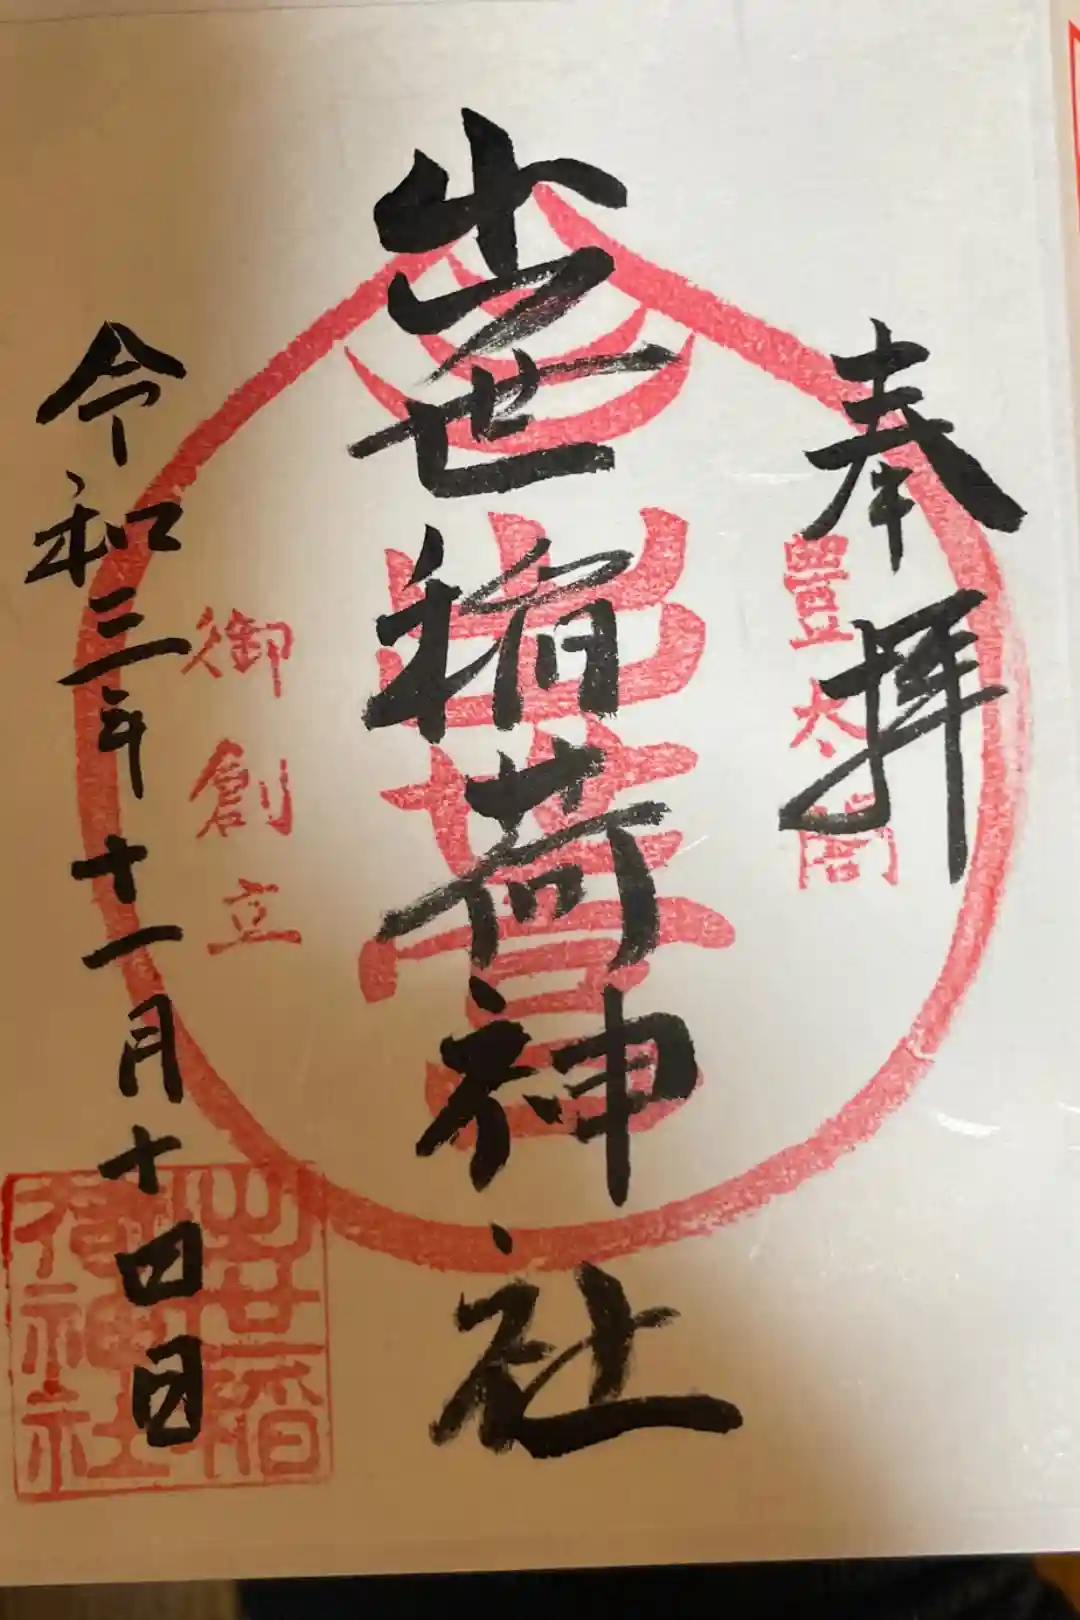 奉拝
豊太閤
出世稲荷神社
出世
御創立
令和三年十一月十四日
出世稲
荷神社